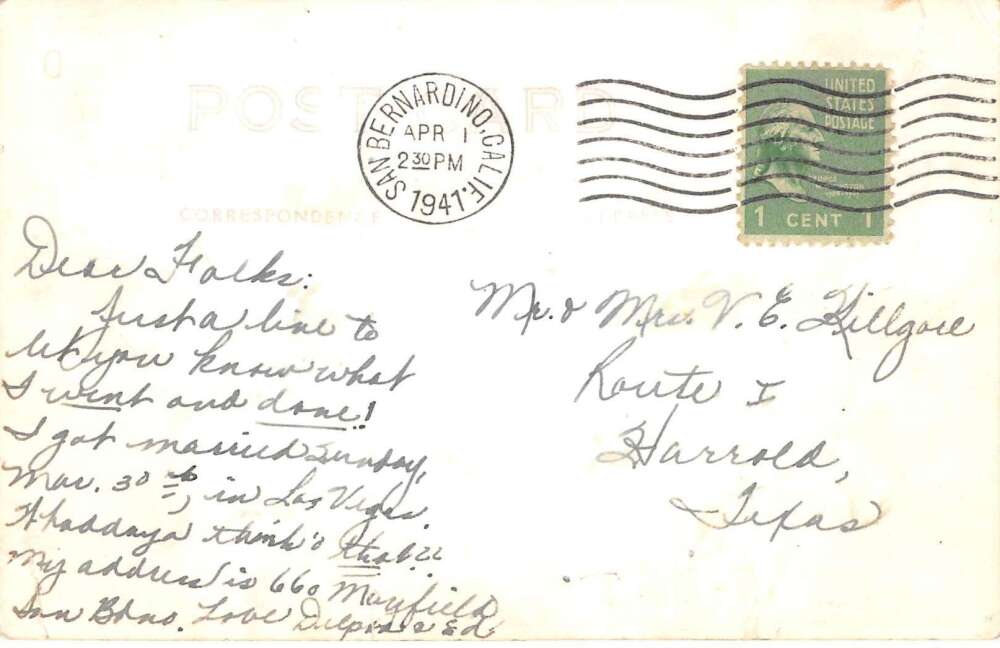 POST CARD
SAN BERNARDINO, CALIF.
APR 1
2 30 PM
1941
UNITED
STATES
POSTAGE
1 CENT 1
CORRESPONDENCE
Dear Folks:
Just a line to
let you know what
I went and done!
I got married Sunday,
Mar. 30th, in Las Vegas.
Whaddaya think o' that??
My address is 660 Mayfield
San Bdno. Love & Ed
Mr. & Mrs. V. E. Killgore
Route I
Harrold,
Texas